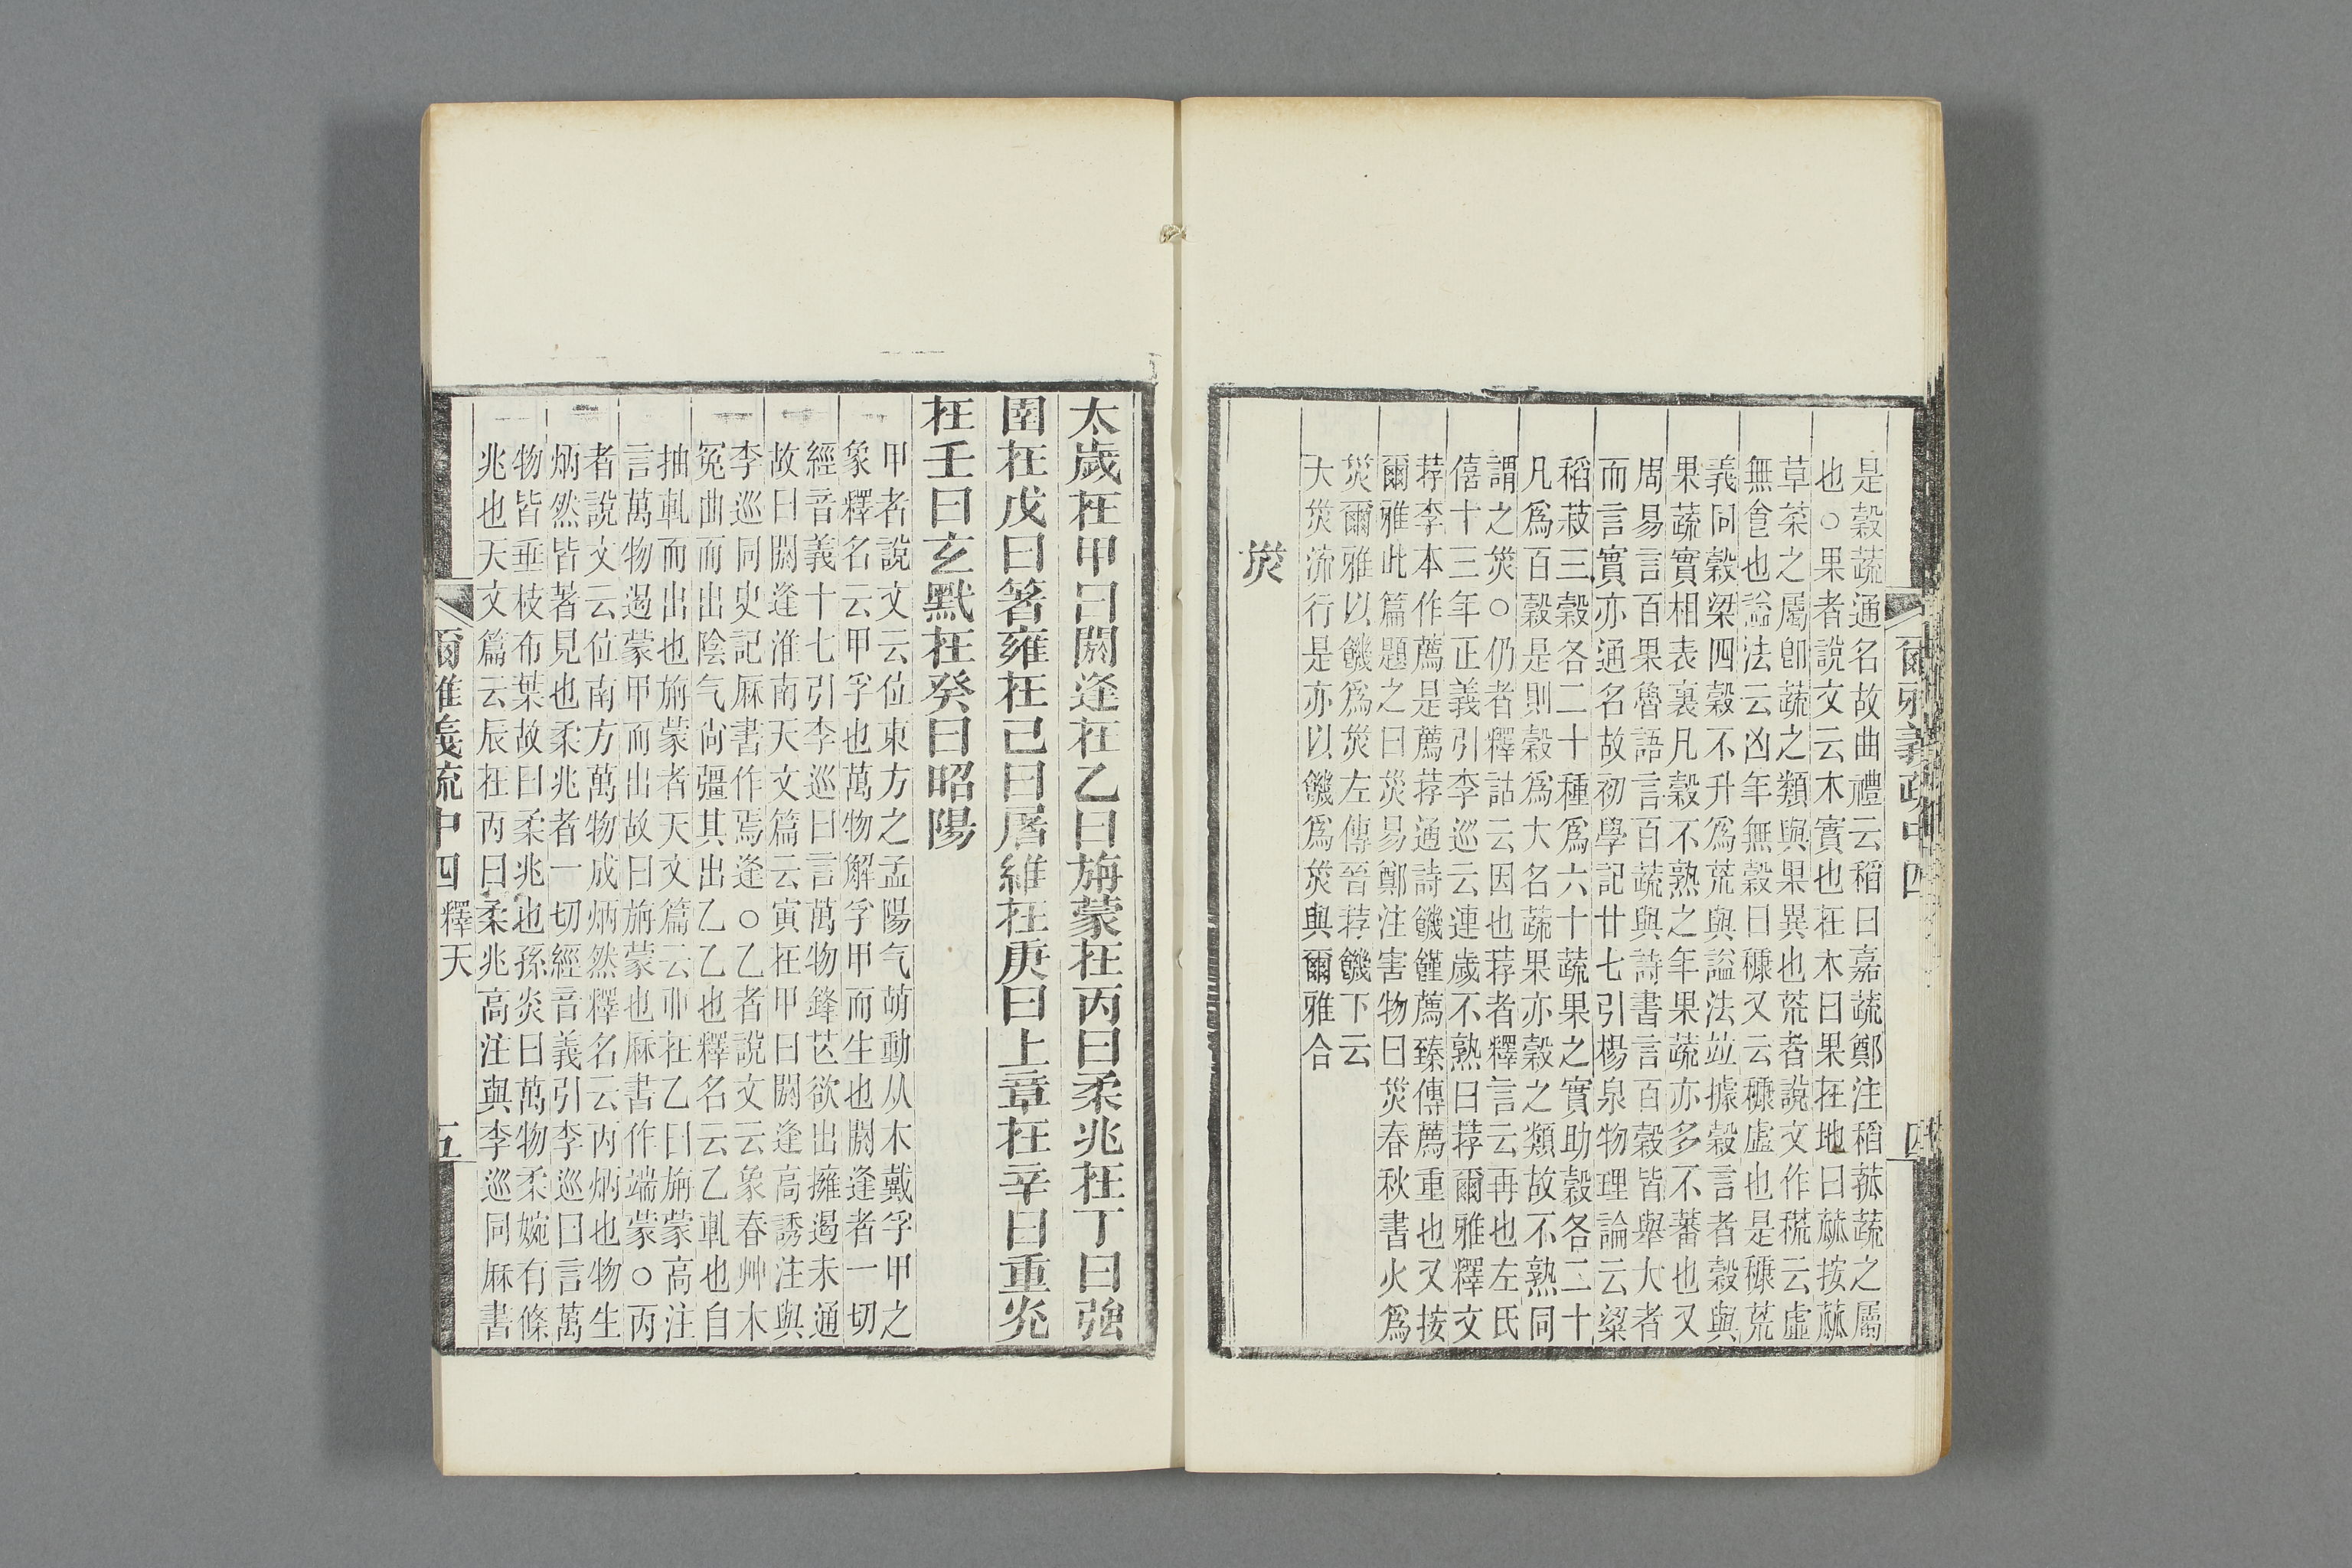 爾雅義疏中四
四
是穀蔬通名故曲禮云稻曰嘉蔬鄭注稻菰蔬之屬
也○果者說文云木實也在木曰果在地曰蓏按蓏
草菜之屬卽蔬之類與果異也荒者說文作㡃云虛
無㒵也謚法云凶年無穀曰穅又云穅虛也是穅荒
義同穀梁四穀不升爲荒與謚法竝據穀言者穀與
果蔬實相表裏凡穀不熟之年果蔬亦多不蕃也又
周易言百果魯語言百蔬與詩書言百穀皆舉大者
而言實亦通名故初學記廿七引楊泉物理論云粱
稻菽三穀各二十種爲六十蔬果之實助穀各二十
凡爲百穀是則穀爲大名蔬果亦穀之類故不熟同
謂之災○仍者釋詁云因也荐者釋言云再也左氏
僖十三年正義引李巡云連歲不熟曰荐爾雅釋文
荐李本作薦是薦荐通詩饑饉薦臻傳薦重也又按
爾雅此篇題之曰災易鄭注害物曰災春秋書火爲
災爾雅以饑爲災左傳晉荐饑下云
大災流行是亦以饑爲災與爾雅合
災
太歲在甲曰閼逢在乙曰旃蒙在丙曰柔兆在丁曰強
圉在戊曰箸雍在己曰屠維在庚曰上章在辛曰重光
在壬曰玄黓在癸曰昭陽
甲者說文云位東方之孟陽气萌動从木戴孚甲之
象釋名云甲孚也萬物解孚甲而生也閼逢者一切
經音義十七引李巡曰言萬物鋒芒欲出擁遏未通
故曰閼逢淮南天文篇云寅在甲曰閼逢高誘注與
李巡同史記厤書作焉逢○乙者說文云象春艸木
冤曲而出陰气尚彊其出乙乙也釋名云乙軋也自
抽軋而出也旃蒙者天文篇云卯在乙曰旃蒙高注
言萬物遏蒙甲而出故曰旃蒙也厤書作端蒙○丙
者說文云位南方萬物成炳然釋名云丙炳也物生
炳然皆著見也柔兆者一切經音義引李巡曰言萬
物皆垂枝布葉故曰柔兆也孫炎曰萬物柔婉有條
兆也天文篇云辰在丙曰柔兆高注與李巡同厤書
爾雅義疏中四 釋天
五